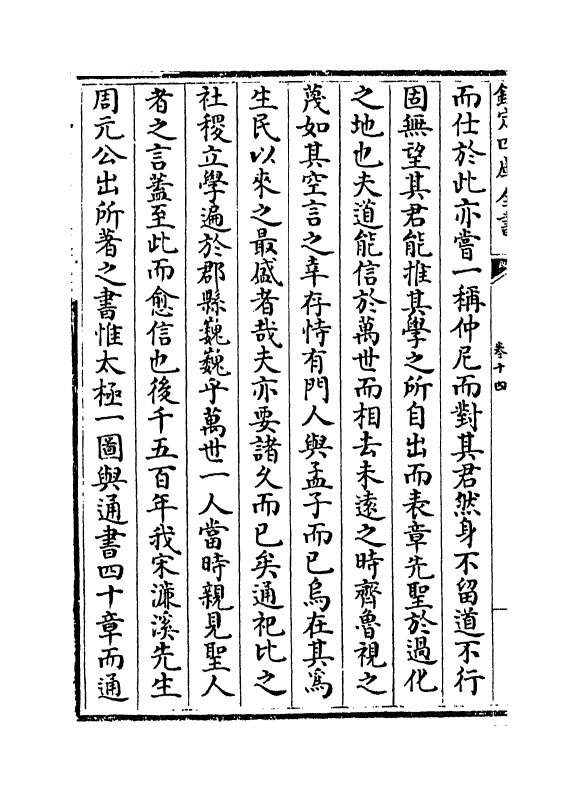 欽定四庫全書
卷十四
而仕於此亦嘗一稱仲尼而對其君然身不留道不行
固無望其君能推其學之所自出而表章先聖於過化
之地也夫道能信於萬世而相去未遠之時齊魯視之
蔑如其空言之幸存恃有門人與孟子而已烏在其為
生民以來之最盛者哉夫亦要諸久而已矣通祀比之
社稷立學遍於郡縣巍巍乎萬世一人當時親見聖人
者之言蓋至此而愈信也後千五百年我宋濂溪先生
周元公出所著之書惟太極一圖與通書四十章而通